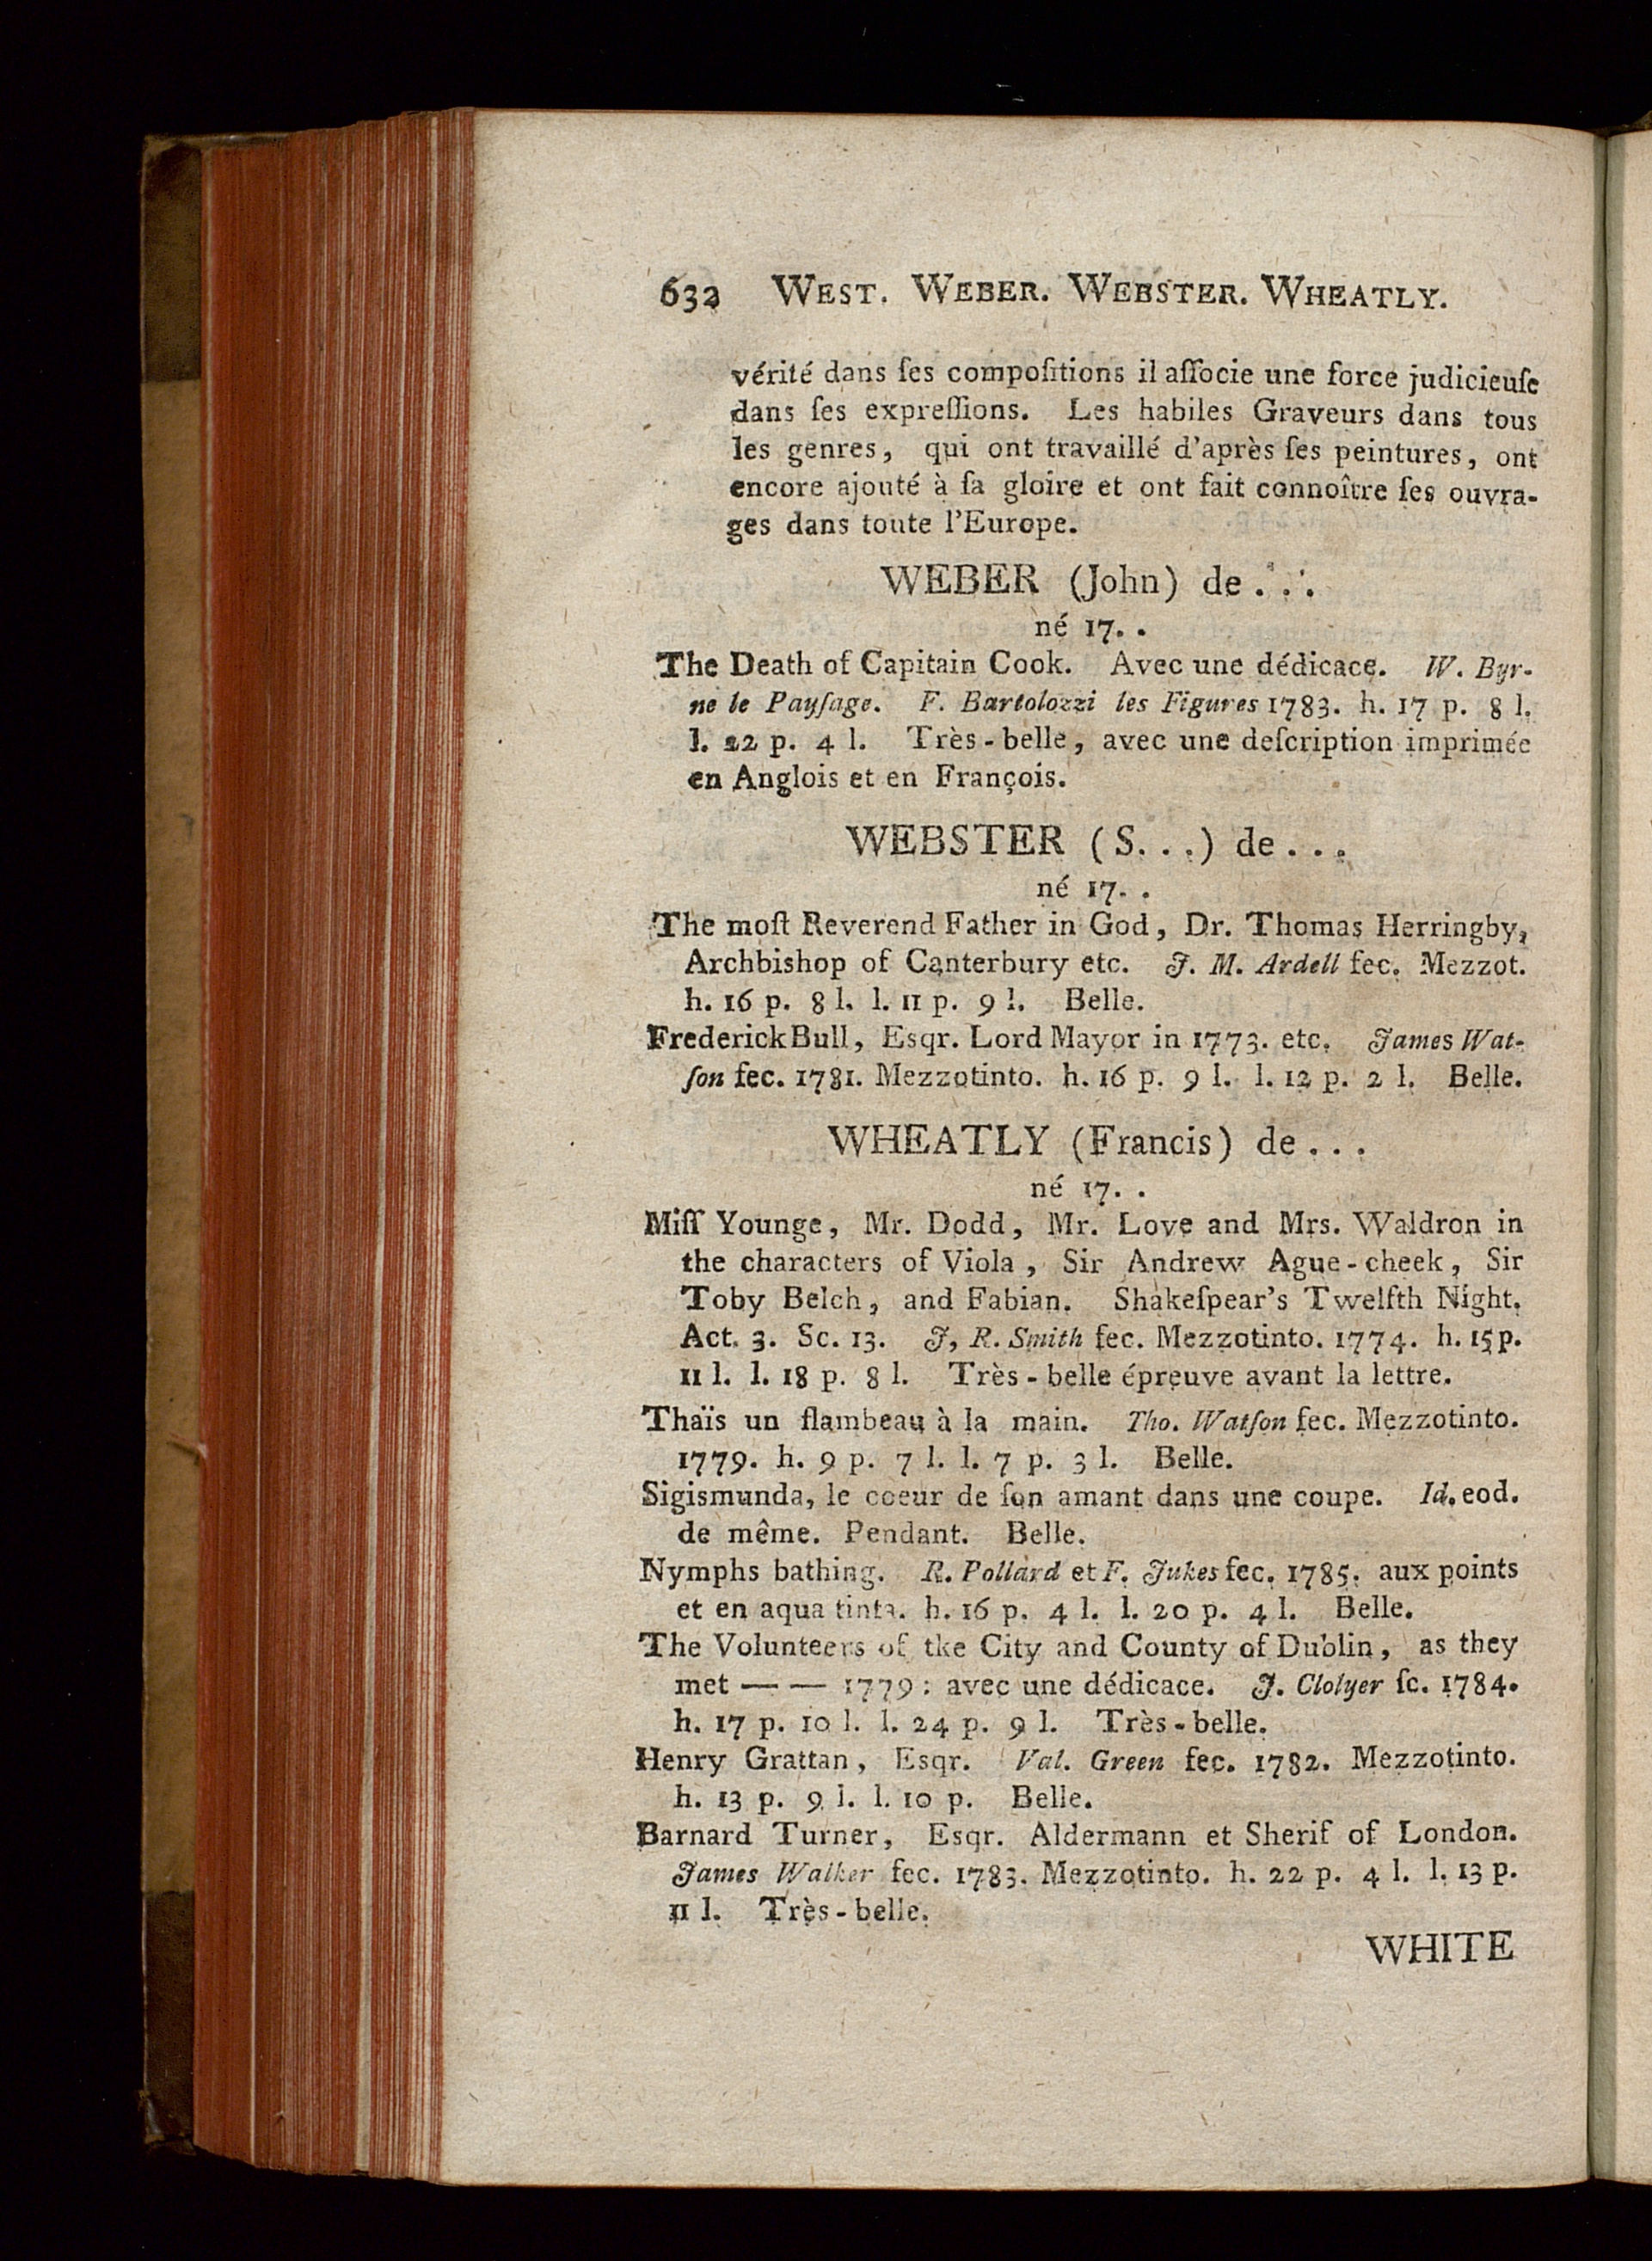 632 WEST. WEBER. WEBSTER. WHEATLY.
vérité dans ſes compoſitions il aſſocie une force judicieuſe
dans ſes expreſſions. Les habiles Graveurs dans tous
les genres, qui ont travaillé d'après ſes peintures, ont
encore ajouté à ſa gloire et ont fait connoître ſes ouvra-
ges dans toute l'Europe.
WEBER (John) de . . .
né 17. .
The Death of Capitain Cook. Avec une dédicace. W. Byr-
ne le Payſage. F. Bartolozzi les Figures 1783. h. 17 p. 8 l.
l. 22 p. 4 l. Très-belle, avec une deſcription imprimée
en Anglois et en François.
WEBSTER (S. . .) de . . .
né 17. .
The moſt Reverend Father in God, Dr. Thomas Herringby,
Archbishop of Canterbury etc. J. M. Ardell fec. Mezzot.
h. 16 p. 8 l. l. 11 p. 9 l. Belle.
Frederick Bull, Esqr. Lord Mayor in 1773. etc. James Wat-
ſon fec. 1781. Mezzotinto. h. 16 p. 9 l. l. 12 p. 2 l. Belle.
WHEATLY (Francis) de . . .
né 17. .
Miſſ Younge, Mr. Dodd, Mr. Love and Mrs. Waldron in
the characters of Viola, Sir Andrew Ague-cheek, Sir
Toby Belch, and Fabian. Shakeſpear's Twelfth Night.
Act. 3. Sc. 13. J, R. Smith fec. Mezzotinto. 1774. h. 15 p.
11 l. l. 18 p. 8 l. Très-belle épreuve avant la lettre.
Thaïs un flambeau à la main. Tho. Watſon fec. Mezzotinto.
1779. h. 9 p. 7 l. l. 7 p. 3 l. Belle.
Sigismunda, le coeur de ſon amant dans une coupe. Id. eod.
de même. Pendant. Belle.
Nymphs bathing. R. Pollard et F. Jukes fec. 1785. aux points
et en aqua tinta. h. 16 p. 4 l. l. 20 p. 4 l. Belle.
The Volunteers of tke City and County of Dublin, as they
met — — 1779: avec une dédicace. J. Clolyer ſc. 1784.
h. 17 p. 10 l. l. 24 p. 9 l. Très-belle.
Henry Grattan, Esqr. Val. Green fec. 1782. Mezzotinto.
h. 13 p. 9 l. l. 10 p. Belle.
Barnard Turner, Esqr. Aldermann et Sherif of London.
James Walker fec. 1783. Mezzotinto. h. 22 p. 4 l. l. 13 p.
11 l. Très-belle.
WHITE